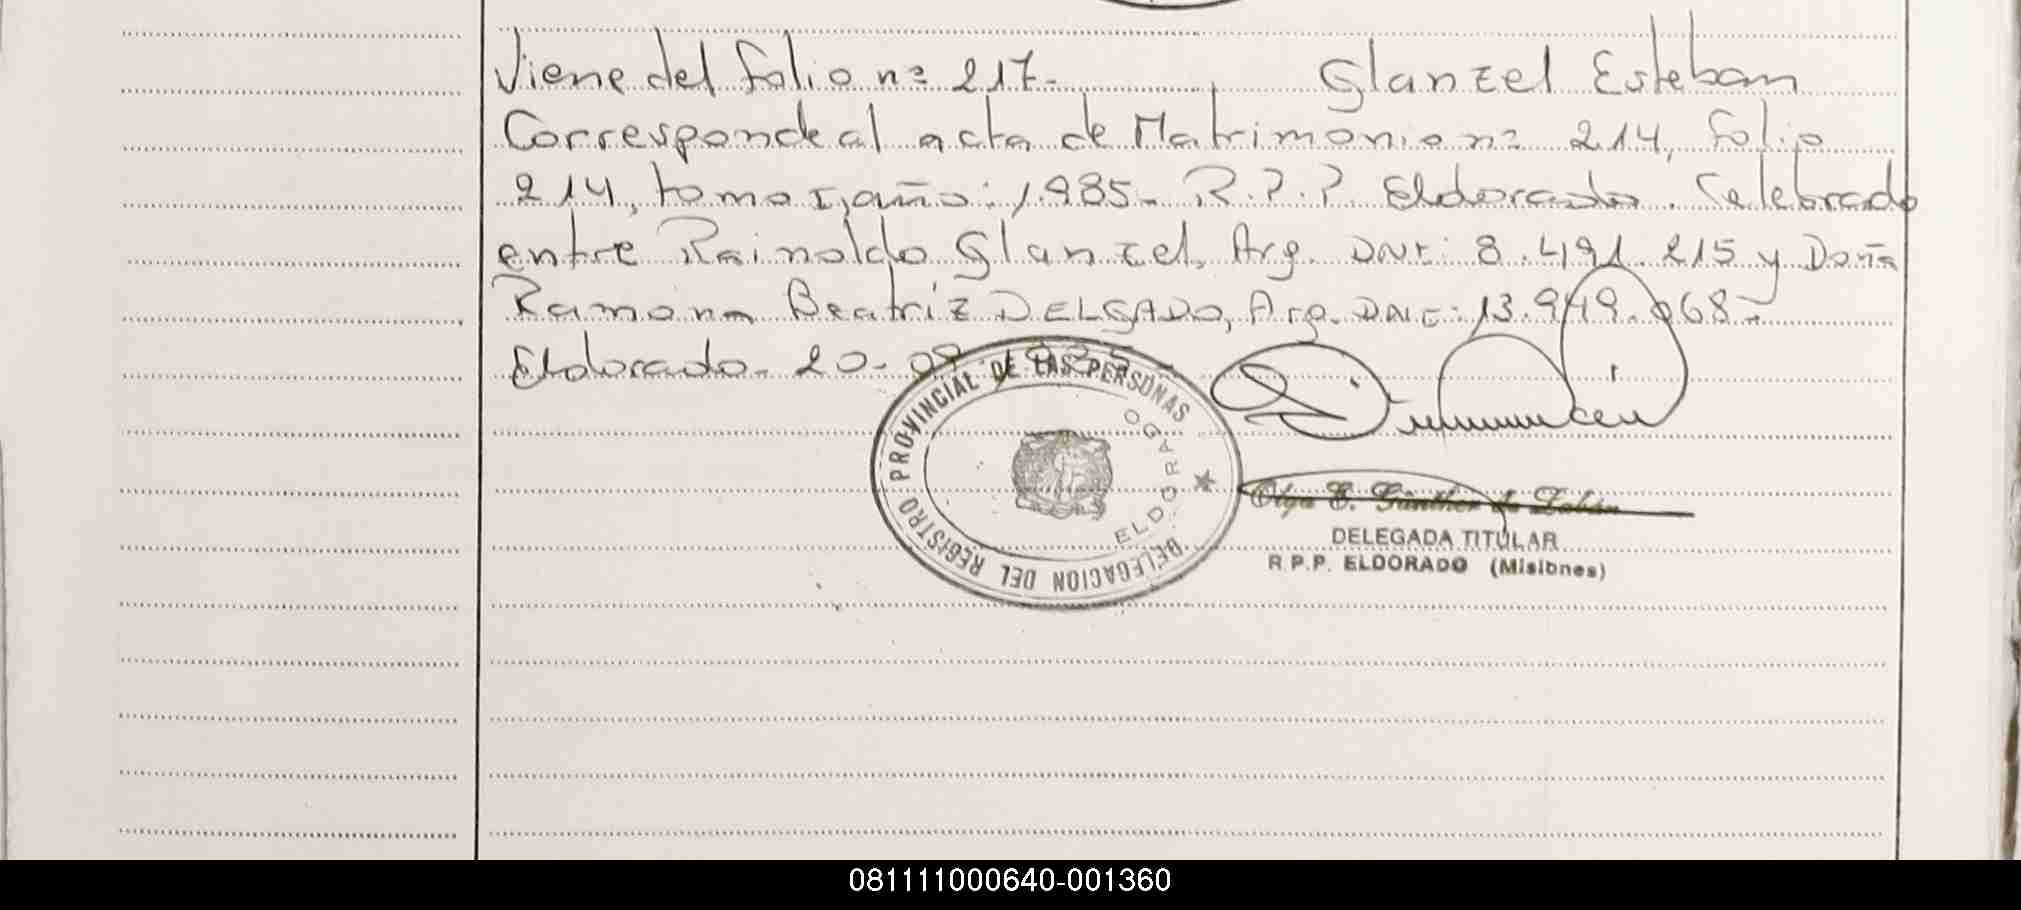 Viene del folio nº 217.- Glanzel Esteban
Corresponde al acta de Matrimonio nº 214, folio
214, tomo I, año: 1.985- R.P.P. Eldorado. Celebrado
entre Rainoldo Glanzel, Arg. DNI: 8.491.215 y Doña
Ramona Beatriz DELGADO, Arg. DNI: 13.949.068-
Eldorado- 20-09-1985-
DELEGACION DEL REGISTRO PROVINCIAL DE LAS PERSONAS
ELDORADO
Olga E. Günther de
DELEGADA TITULAR
R.P.P. ELDORADO (Misiones)
081111000640-001360